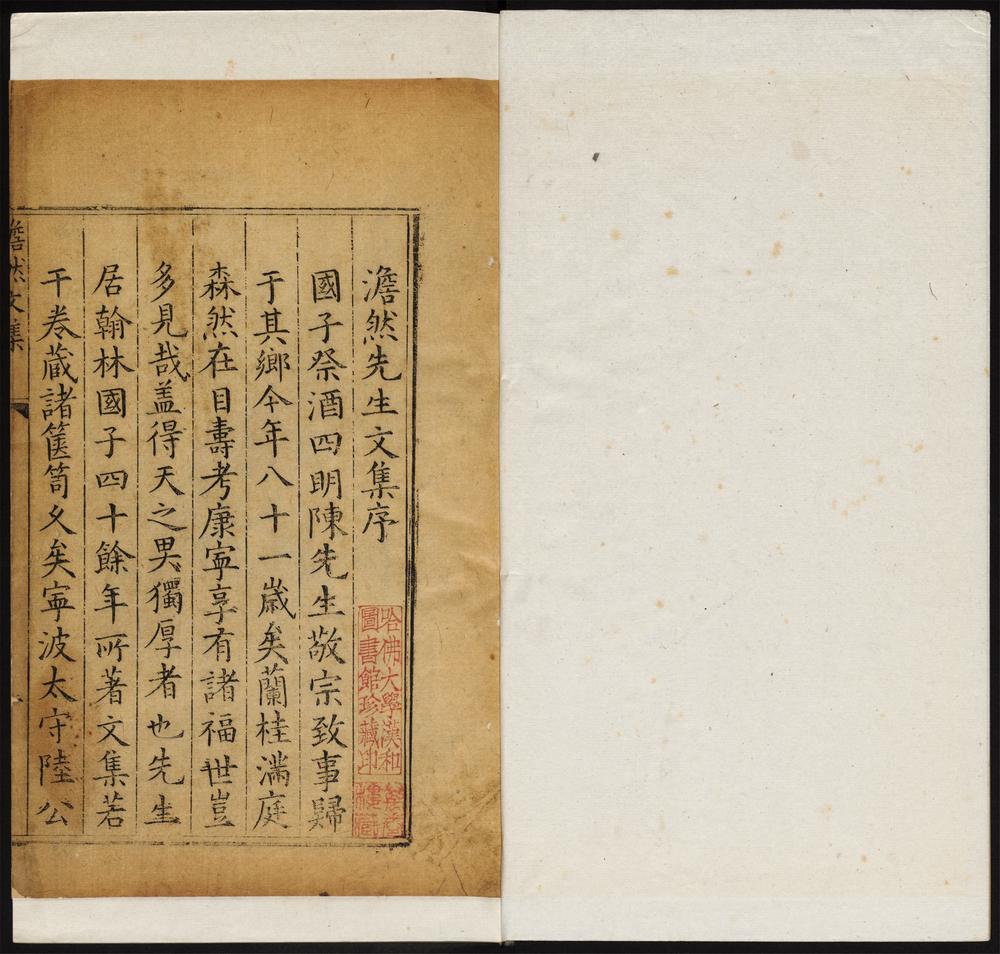 澹然先生文集序
國子祭酒四明陳先生敬宗致事歸
于其鄉今年八十一歲矣蘭桂滿庭
森然在目壽考康寧享有諸福世豈
多見哉盖得天之異獨厚者也先生
居翰林國子四十餘年所著文集若
干卷藏諸篋笥久矣寧波太守陸公
澹然文集
哈佛大學漢和
圖書館珍藏印